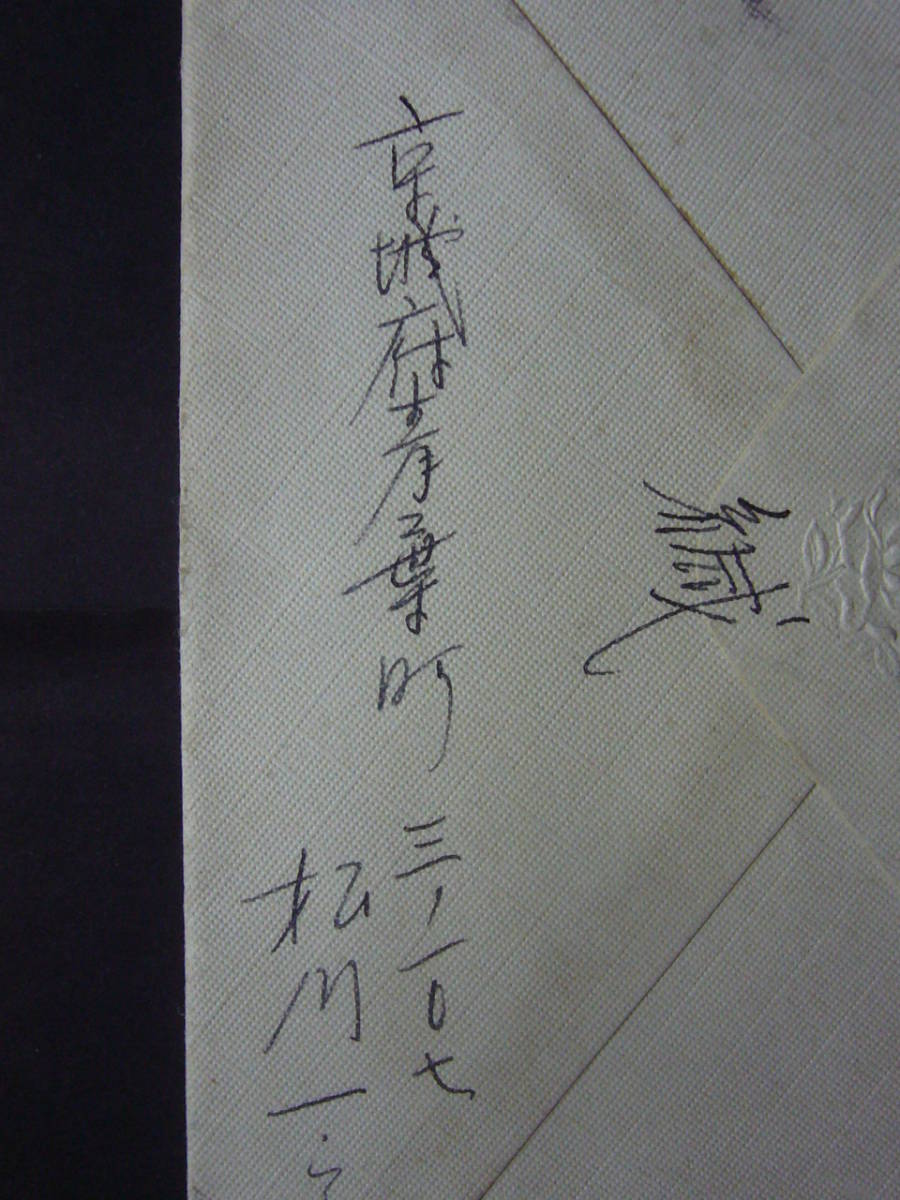 京城府青葉町三ノ一〇七
松川一